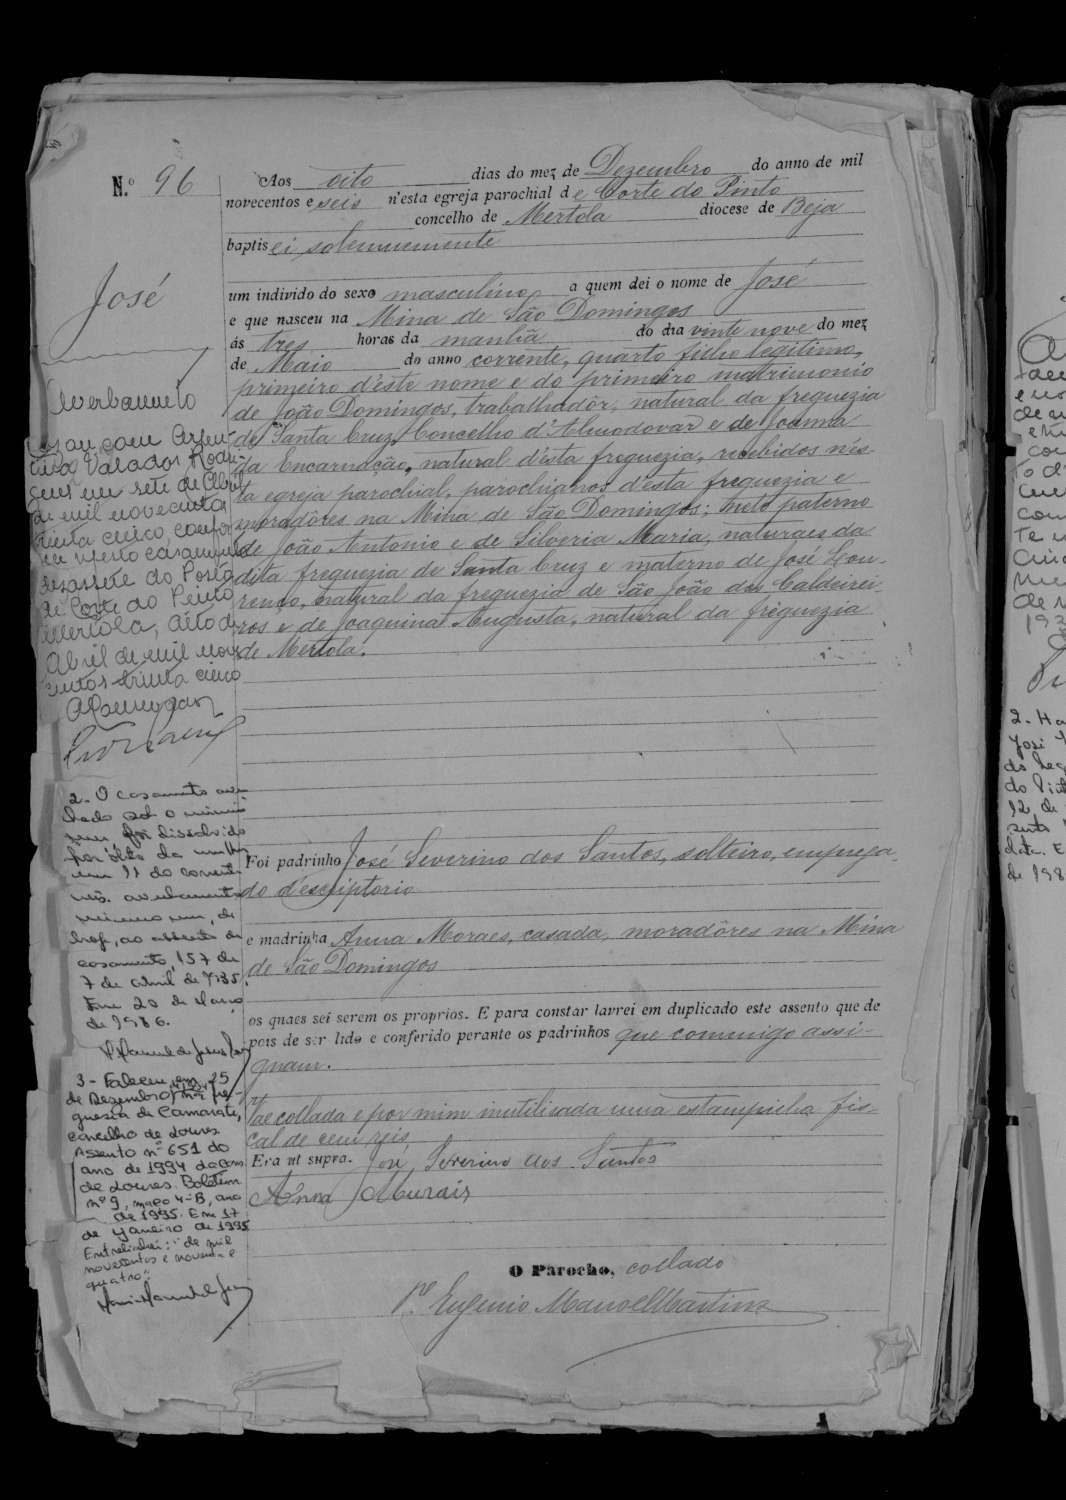 N.º 96
José
Aos oito dias do mez de Dezembro do anno de mil
novecentos e seis n'esta egreja parochial de Corte do Pinto
concelho de Mertola diocese de Beja
baptisei solemnemente
um individo do sexo masculino a quem dei o nome de José
e que nasceu na Mina de São Domingos
ás tres horas da manhã do dia vinte nove do mez
de Maio do anno corrente, quarto filho legitimo,
primeiro d'este nome e do primeiro matrimonio
de João Domingos, trabalhadôr, natural da freguezia
de Santa Cruz, Concelho d'Almodovar e de Joanna
da Encarnação, natural d'esta freguezia, recebidos nés-
ta egreja parochial, parochianos d'esta freguezia e
moradôres na Mina de São Domingos; neto paterno
de João Antonio e de Silveria Maria, naturaes da
dita freguezia de Santa Cruz e materno de José Lou-
renço, natural da freguezia de São João dos Caldeirei-
ros e de Joaquina Augusta, natural da freguezia
de Mertola.
Foi padrinho José Severino dos Santos, solteiro, emprega-
do d'escriptorio
e madrinha Anna Moraes, casada, moradôres na Mina
de São Domingos
os quaes sei serem os proprios. E para constar lavrei em duplicado este assento que de
pois de ser lido e conferido perante os padrinhos que commigo assi-
gnam.
Vae collada e por mim inutilisada uma estampilha fis-
cal de cem reis.
Era ut supra. José Severino dos Santos
Anna Murais
O Parocho, collado
P.e Eugenio Manoel Martins
Averbamento
Casou com Argen-
tina Valadas Rodri-
gues em sete de Abril
de mil novecentos
trinta cinco, confor-
me assento casamento
dezassete do Posto
de Corte do Pinto
Mertola, oito de
Abril de mil nove
centos trinta cinco
2- O casamento aver-
bado sob o numero
um foi dissolvido
por óbito da mulher
em 11 do corrente
mês. averbamento
numero um, de
hoje, ao assento de
casamento, 157 de
7 de abril de 1935.
Em 20 de Março
de 1986.
3- Faleceu em 25
de Dezembro, na fre-
guesia de Camarate,
concelho de Loures
Assento nº 651 do
ano de 1994 da Cons.
de Loures. Boletim
nº 9, maço 4-B, ano
de 1995. Em 17
de Janeiro de 1995
Entrelinhei: "de mil
novecentos e noventa e
quatro".
2- Ha
José
do
do
12 de
de 198